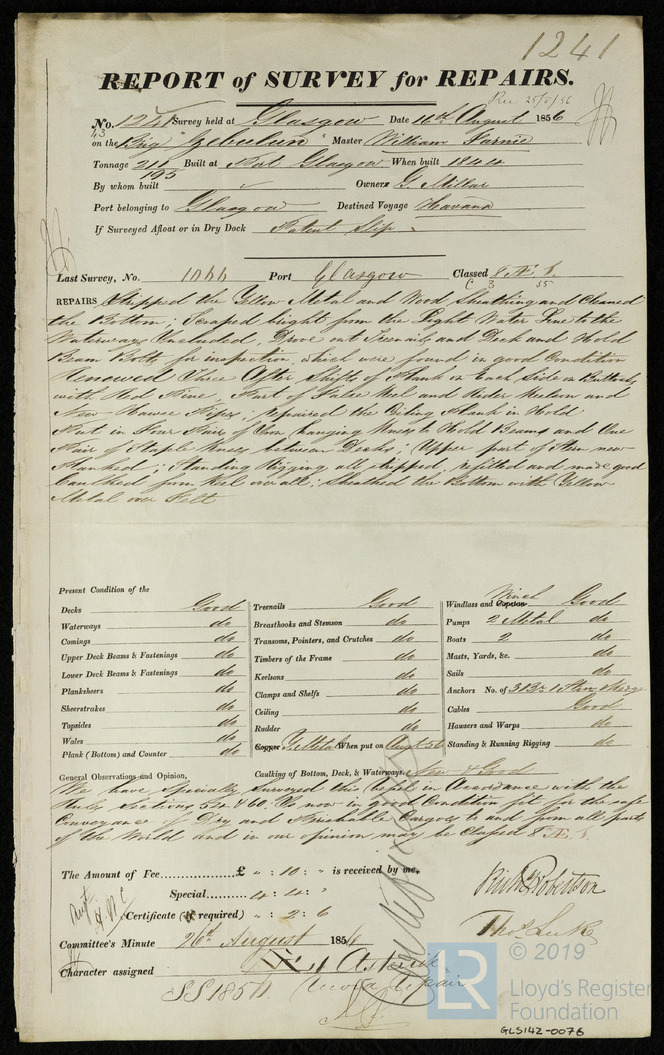 1241
REPORT of SURVEY for REPAIRS.
Rec 25/8/56
No. 1241 Survey held at Glasgow Date 16th August 1856
43
on the Brig "Zebulun" Master William
Tonnage 211 Built at Port Glasgow When built 1844
195
By whom built Owners G. Millar
Port belonging to Glasgow Destined Voyage Havana
If Surveyed Afloat or in Dry Dock Patent Slip
Last Survey, No. 1066 Port Glasgow Classed 8 Æ 1
C 3 55
REPAIRS Stripped the Yellow Metal and Wood Sheathing and Cleaned
the Bottom; Scraped bright from the Light Water Line to the
Waterways Included, Drove out Treenails and Deck and Hold
Beam Bolts for inspection, which were found in good Condition
Renewed Three After Shifts of Plank on Each Side on Buttocks
with Red Pine, Part of False Keel and Rider Keelson and
New Hawse Pipes; repaired the Ceiling Plank in Hold
Put in Four Pair of Iron hanging Knees to Hold Beams and One
Pair of Staple Knees between Decks; Upper part of Stem new
; Standing Rigging all stripped, refitted and made good
Caulked from Keel over all; Sheathed the Bottom with Yellow
Metal over Felt
Present Condition of the
Decks Good
Waterways do
Comings do
Upper Deck Beams & Fastenings do
Lower Deck Beams & Fastenings do
Planksheers do
Sheerstrakes do
Topsides do
Wales do
Plank (Bottom) and Counter do
Treenails Good
Breasthooks and Stemson do
Transoms, Pointers, and Crutches do
Timbers of the Frame do
Keelsons do
Clamps and Shelfs do
Ceiling do
Rudder do
Copper Y. Metal When put on Augt 56
Winch
Windlass and Capstan Good
Pumps 2 Metal do
Boats 2 do
Masts, Yards, &c. do
Sails do
Anchors No. of 3 Br 1 Stream 1 Kedge
Cables Good
Hawsers and Warps do
Standing & Running Rigging do
General Observations and Opinion, Caulking of Bottom, Deck, & Waterways New & Good
We have specially Surveyed this Vessel in Accordance with the
Rules Sections 54 & 60. Is now in good Condition fit for the safe
Conveyance of Dry and Perishable Cargoes to and from all parts
of the World and in our opinion may be Classed 8 Æ 1.
The Amount of Fee £ " : 10 : " is received by me,
Special 4 : 4 : "
Certificate (if required) " : 2 : 6
Richd Robertson
Thos Luke
Committee's Minute 26th August 1856
Character assigned Æ 1 Asterisk
SS 1856
© 2019
LR
Lloyd's Register
Foundation
GLS142-0076